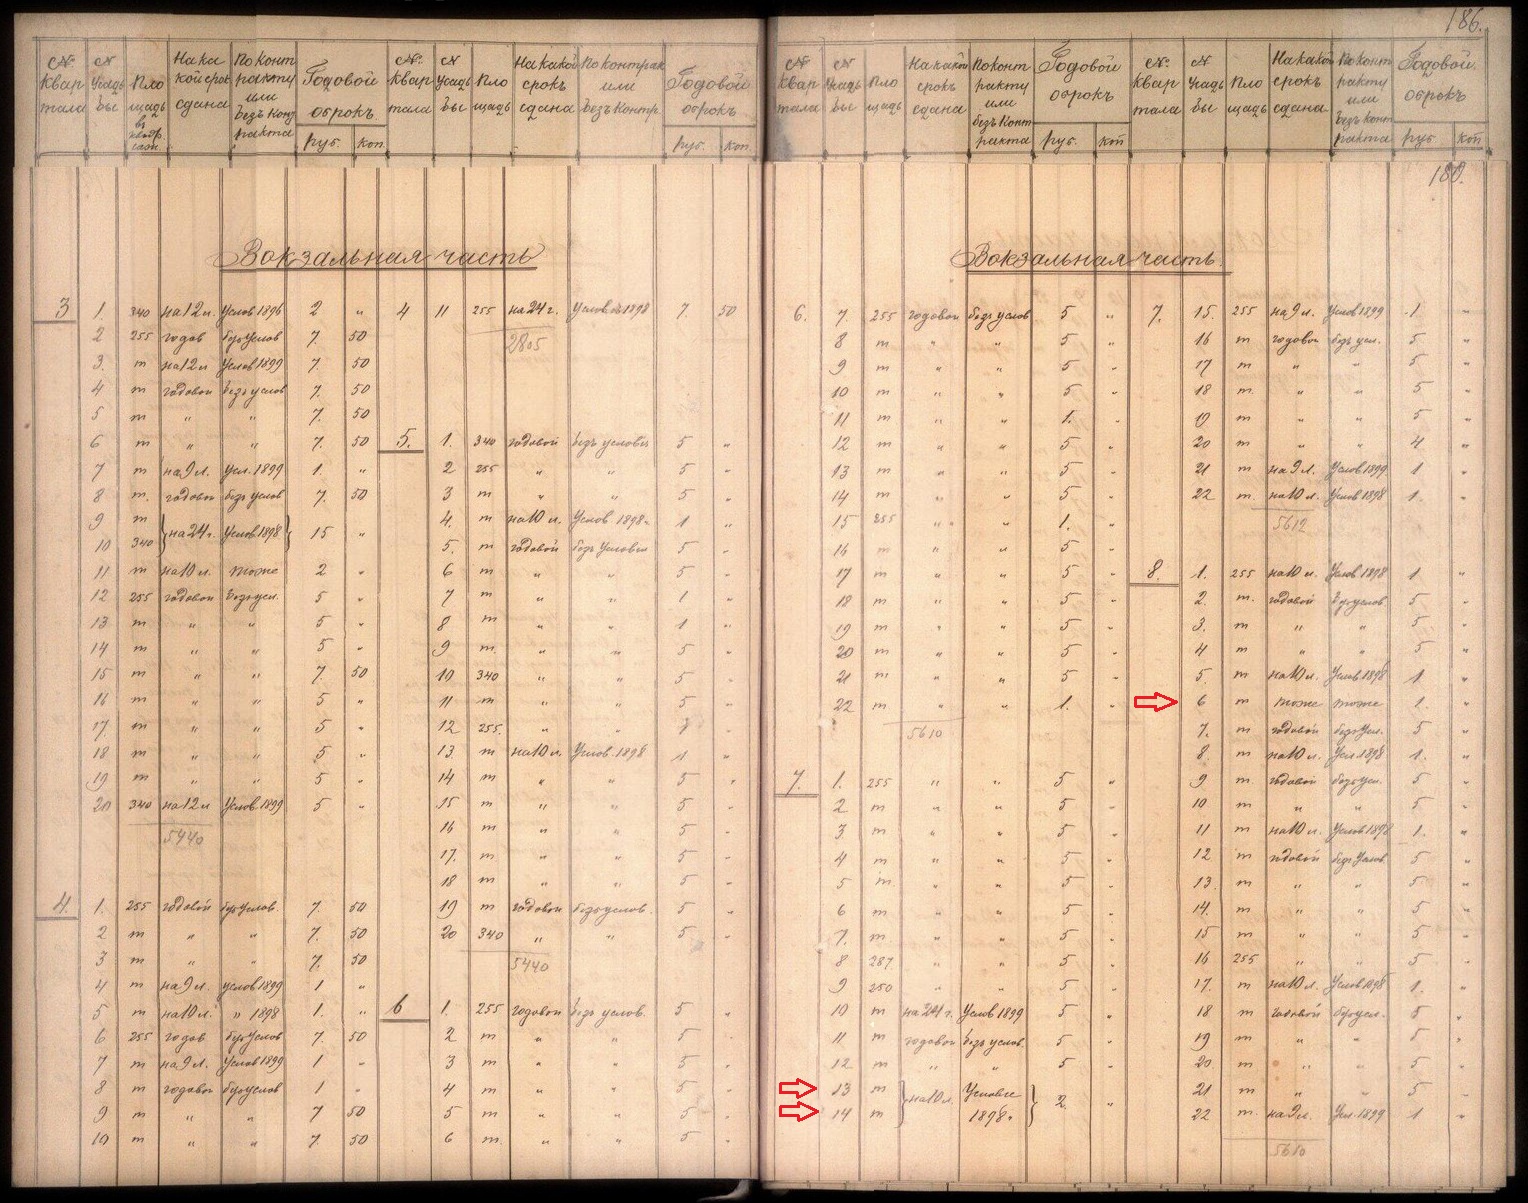 186.
№ Квартала № Усадьбы Площадь въ квадр. саж. На какой срокъ сдана По контракту или безъ контракта Годовой оброкъ руб. коп № Квартала № Усадьбы Площадь На какой срокъ сдана По контрак или безъ контр. Годовой оброкъ руб. коп
№ Квартала № Усадьбы Площадь На какой срокъ сдана По контракту или безъ контракта Годовой оброкъ руб. коп № Квартала № Усадьбы Площадь На какой срокъ сдана По контракту или безъ контракта Годовой оброкъ руб коп
180.
Вокзальная часть
3 1. 340 на 12 л. Услов 1896 2 „
2 255 годов безъ Услов 7. 50
3. т на 12 л Услов 1899 7. 50
4 т годовой безъ услов 7. 50
5 т „ „ 7. 50
6 т „ „ 7. 50
7 т на 9 л. Усл. 1899 1. „
8 т. годовой безъ услов 7. 50
9 т } на 24 г. Услов 1898 } 15 „
10 340
11 т на 10 л. тоже 2 „
12 255 годовой безъ усл. 5 „
13 т „ „ 5 „
14 т „ „ 5 „
15 т „ „ 7. 50
16 т „ „ 5 „
17. т „ „ 5 „
18 т „ „ 5 „
19 т „ „ 5 „
20 340 на 12 л Услов 1899 5 „
5440
4. 1. 255 годовой безъ услов. 7. 50
2 т „ „ 7. 50
3 т „ „ 7. 50
4 т на 9 л. услов 1899 1 „
5 т на 10 л. „ 1898 1. „
6 255 годов безъ Услов 7. 50
7 т на 9 л. Услов 1899 1 „
8 т годовой безъ услов 1 „
9 т „ „ 7 50
10 т „ „ 7. 50
4 11 255 на 24 г. Условіе 1898 7. 50
2805
5. 1. 340 годовой безъ условія 5 „
2 255 „ „ 5 „
3 т „ „ 5 „
4. т на 10 л. Услов 1898. 1 „
5. т годовой безъ Условія 5 „
6 т „ „ 5 „
7 т „ „ 1 „
8 т „ „ 1 „
9 т. „ „ 5 „
10 340 „ „ 5 „
11 т „ „ 5 „
12 255. „ „ „
13. т на 10 л. Услов. 1898 1 „
14 т „ „ 5 „
15 т „ „ 5 „
16 т „ „ 5 „
17. т „ „ 5 „
18 т „ „ 5 „
19 т годовой безъ услов. 5 „
20 340 „ „ 5 „
5440
6 1. 255 годовой безъ услов. 5 „
2 т „ „ 5 „
3 т „ „ 5 „
4 т „ „ 5 „
5 т „ „ 5 „
6 т. „ „ 5 „
Вокзальная часть.
6. 7. 255 годовой безъ услов 5 „
8 т „ „ 5 „
9 т „ „ 5 „
10 т „ „ 5 „
11 т „ „ 1. „
12 т „ „ 5 „
13 т „ „ 5 „
14 т „ „ 5 „
15 255 „ „ 1. „
16 т „ „ 5 „
17 т „ „ 5 „
18 т „ „ 5 „
19 т „ „ 5 „
20 т „ „ 5 „
21 т „ „ 5 „
22 т „ „ 1. „
5610
7. 1. 255 „ „ 5 „
2 т „ „ 5 „
3 т „ „ 5 „
4 т „ „ 5 „
5 т. „ „ 5 „
6 т „ „ 5 „
7. т „ „ 5 „
8 287 „ „ 5 „
9 250 „ „ 5 „
10 т на 24 г. Услов 1899 5 „
11 т годовой безъ услов. 5 „
12 т „ „ 5 „
13 т } на 10 л. Условіе 1898. } 2. „
14 т
7. 15. 255 на 9 л. Услов 1899 1 „
16 т годовой безъ усл. 5 „
17 т „ „ 5 „
18 т „ „ 5 „
19 т „ „ 5 „
20 т „ „ 4 „
21 т на 9 л. Услов 1899 1 „
22 т. на 10 л. Услов 1898 1. „
5612
8. 1. 255 на 10 л. Услов 1898 1 „
2. т. годовой безъ услов 5 „
3. т „ „ 5 „
4 т „ „ 5 „
5. т на 10 л. Услов 1898 1. „
6 т тоже тоже 1. „
7. т годовой безъ Усл. 5 „
8. т на 10 л. Усл 1898 1. „
9 т годовой безъ Усл. 5 „
10 т „ „ 5 „
11 т на 10 л. Услов 1898 1. „
12 т годовой безъ Услов 5 „
13. т „ „ 5 „
14. т „ „ 5 „
15 т „ „ 5 „
16 255 „ „ 5 „
17. т на 10 л. Услов 1898 1. „
18 т годовой безъ усл. 5 „
19 т „ „ 5 „
20 т „ „ 5 „
21 т „ „ 5 „
22 т. на 9 л. Усл. 1899 1 „
5610